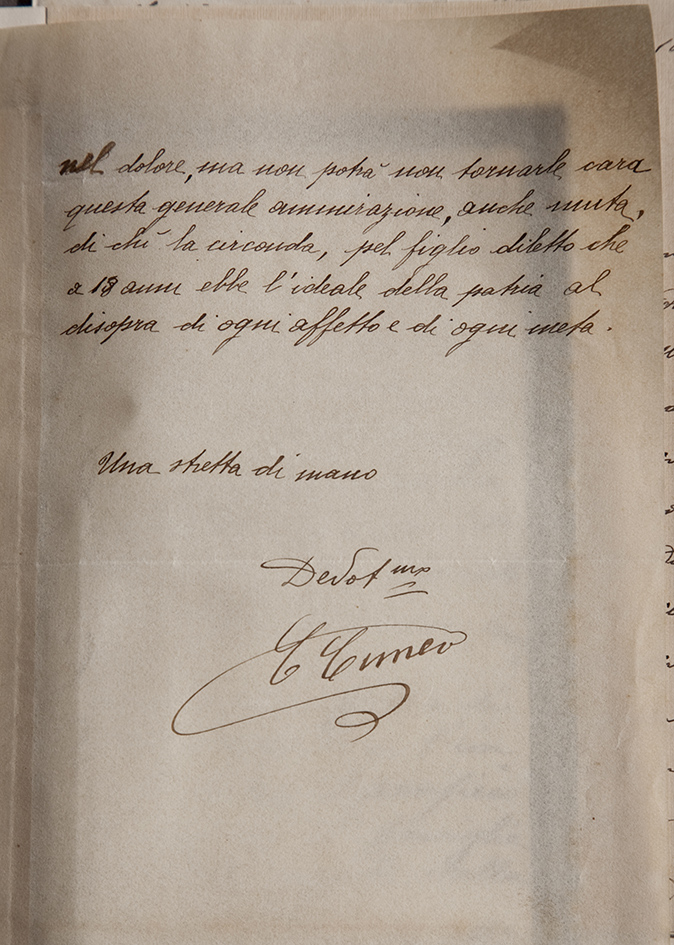 nel dolore, ma non potrà non tornarle cara
questa generale ammirazione, anche muta,
di chi la circonda, pel figlio diletto che
a 18 anni ebbe l'ideale della patria al
disopra di ogni affetto e di ogni meta.
Una stretta di mano
Devot mo
Cuneo